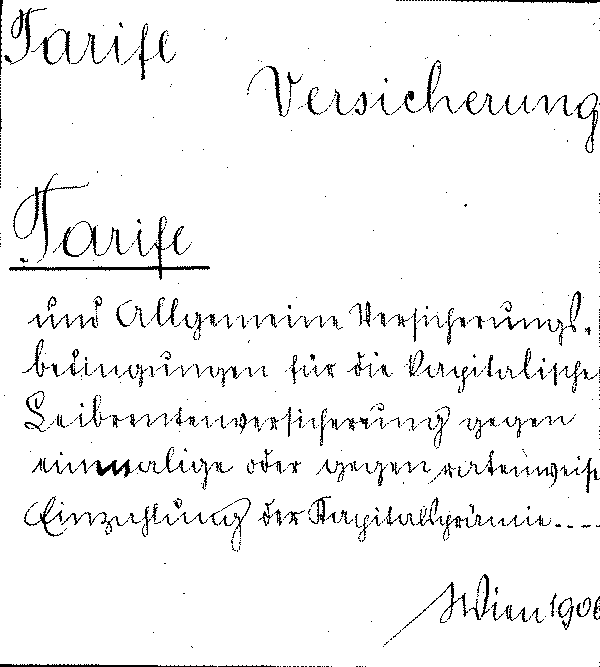 Tarife
Versicherung
Tarife
und Allgemeine Versicherungs-
bedingungen für die Kapitalische
Leibrentenversicherung gegen
einmalige oder gegen ratenweise
Einzahlung der Kapitalsprämie....
Wien 1906